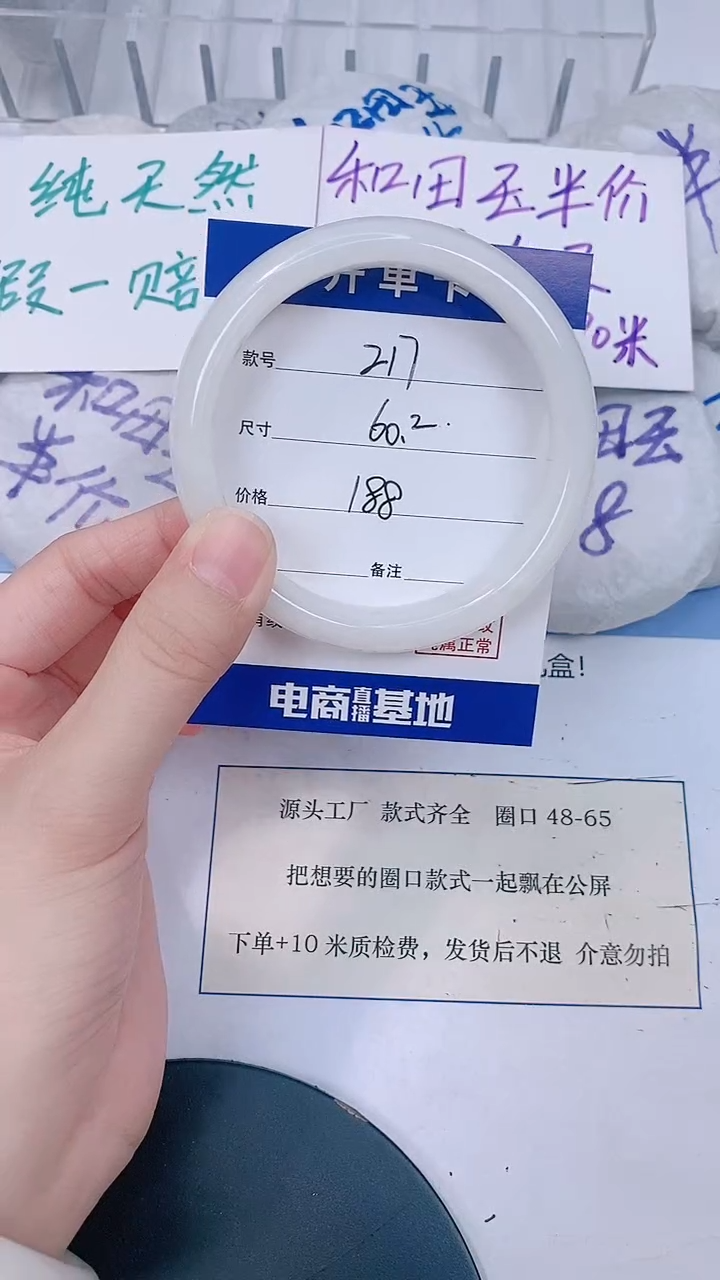 和田玉
纯天然
假一赔
和田玉半价
0米
开单卡
款号 217
尺寸 60.2
价格 188
备注
纯属正常
电商直播基地
和田
半价
田玉
8
礼盒!
源头工厂 款式齐全 圈口 48-65
把想要的圈口款式一起飘在公屏
下单+10 米质检费，发货后不退 介意勿拍